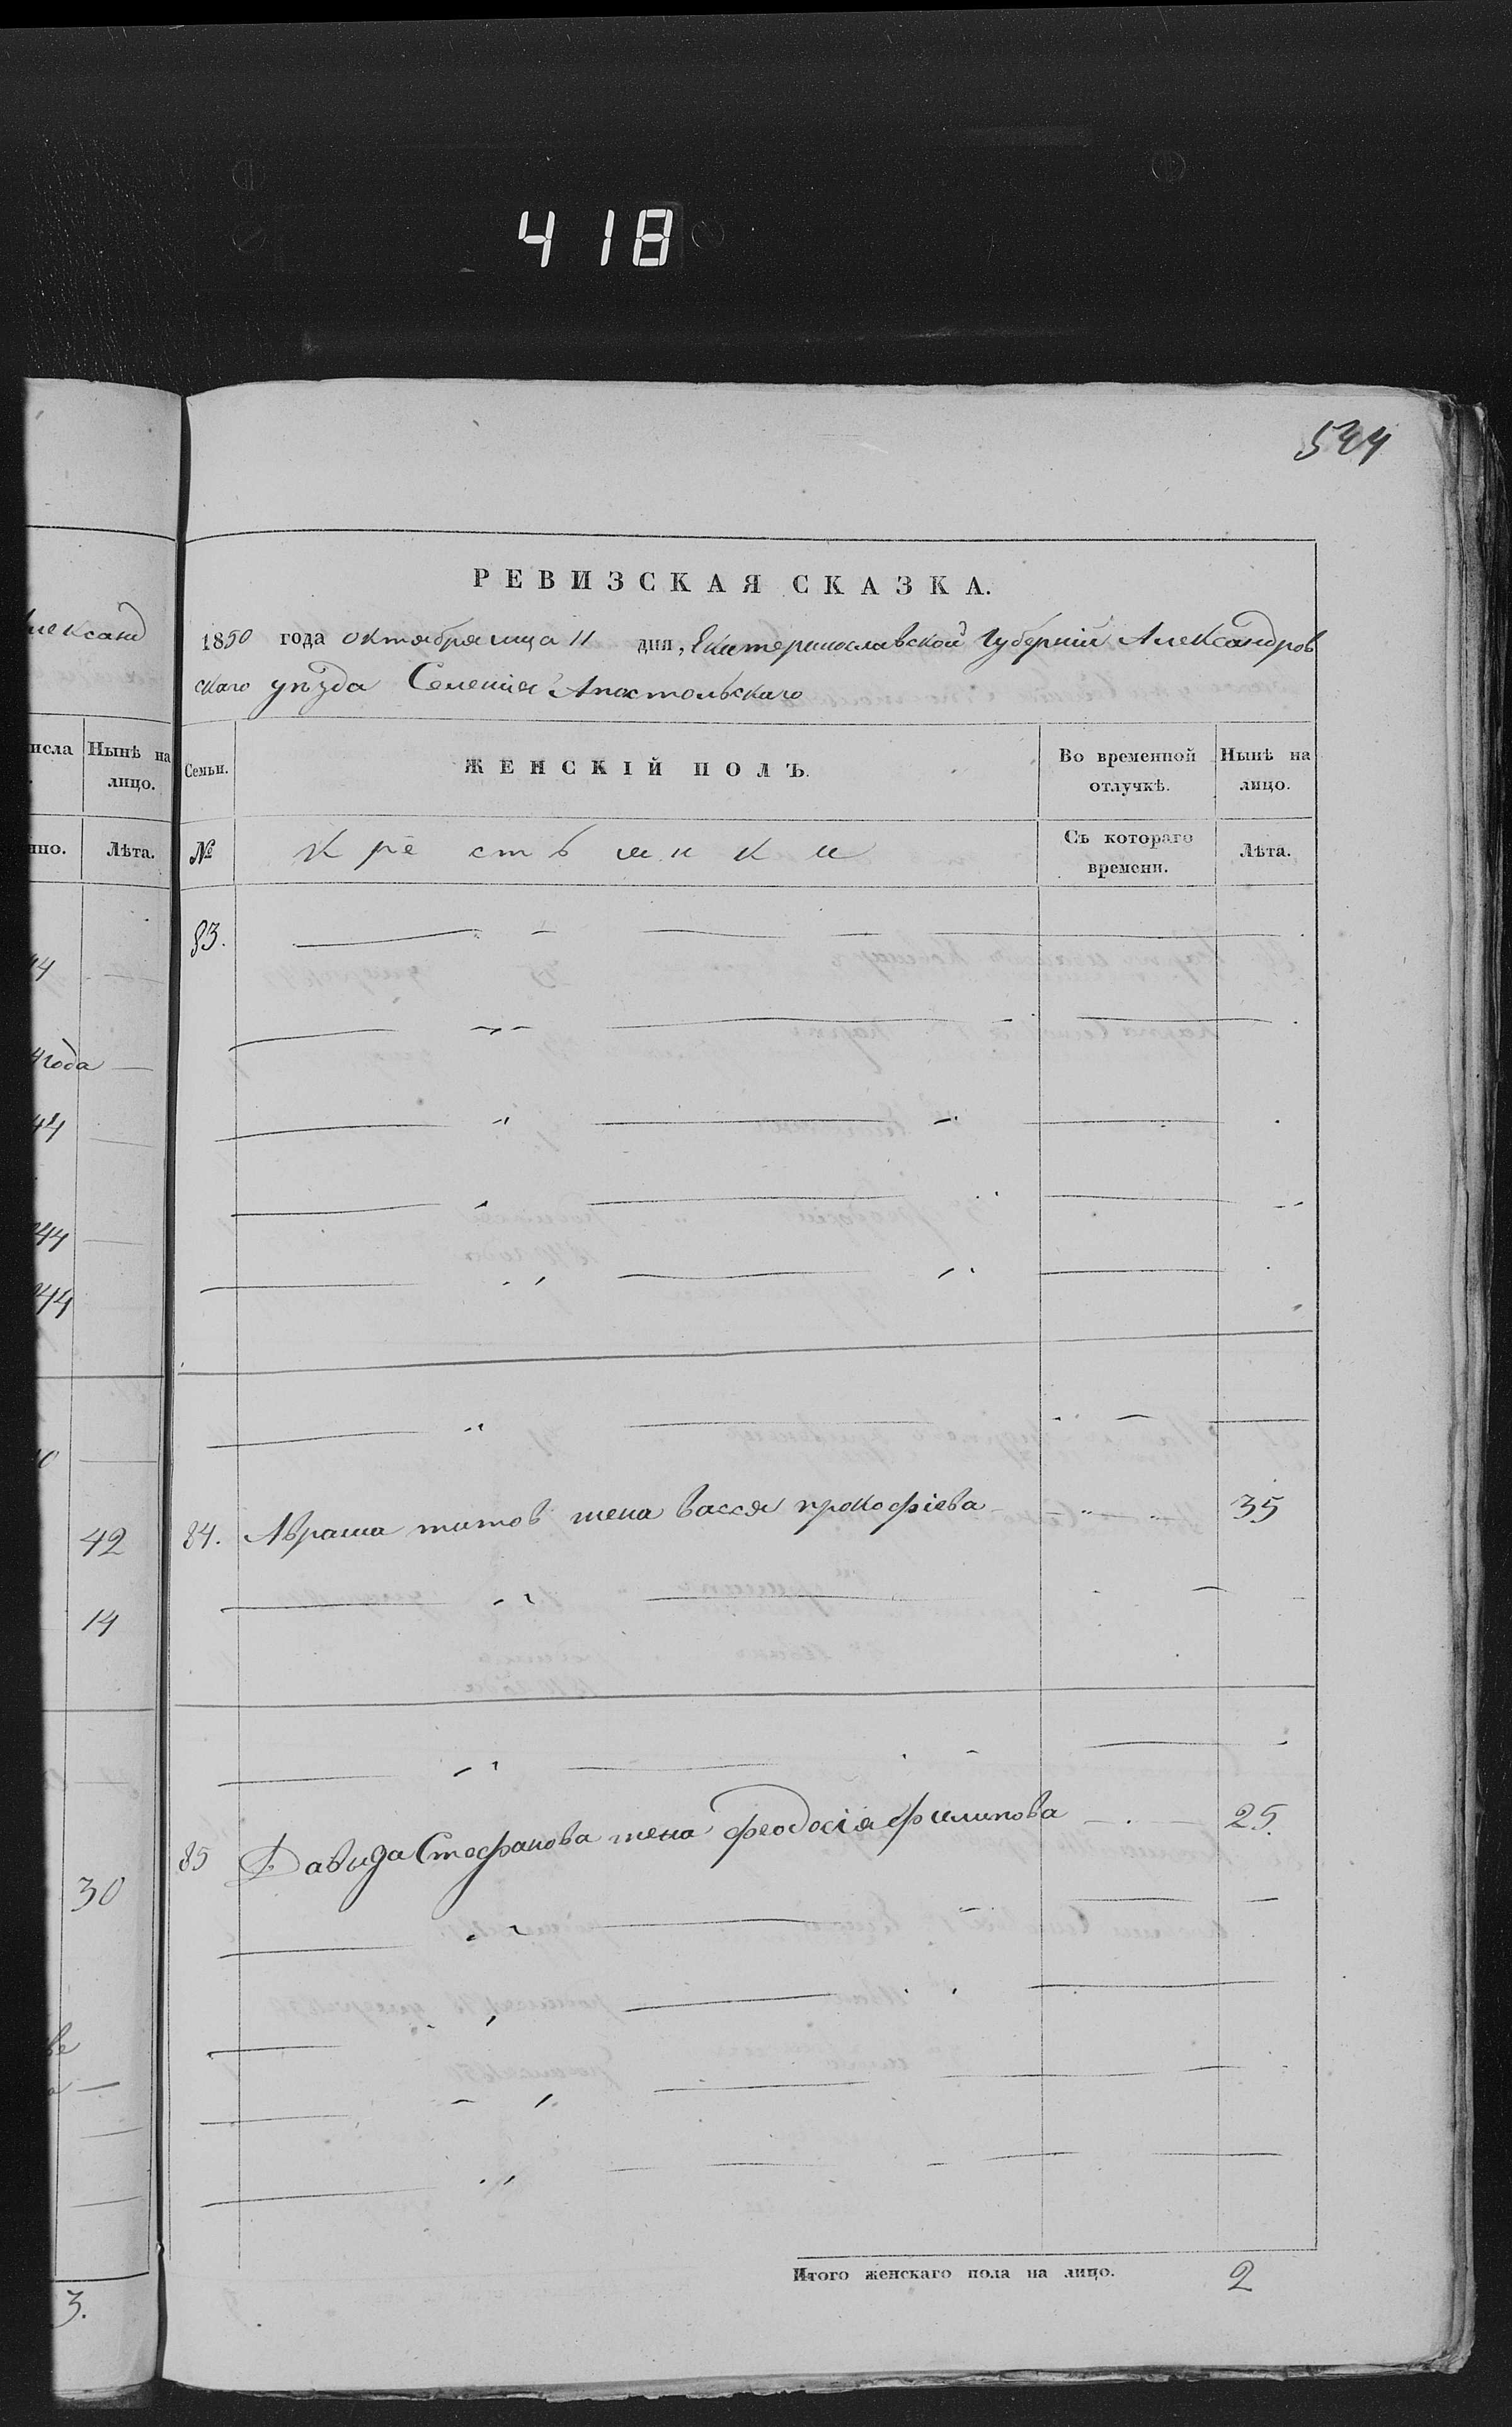 418
544
РЕВИЗСКАЯ СКАЗКА.
1850 года октября мца 11 дня, Екатеринославской Губерніи Александров
скаго уѣзда Селенія Апостольскаго
Семьи. ЖЕНСКІЙ ПОЛЪ. Во временной отлучкѣ. Нынѣ на лицо.
№ Крестьянки Съ котораго времени. Лѣта.
83.
84. Абрама титов жена васса прокофіева 35
85 Давида Стефанова жена феодосія филипова 25.
Итого женскаго пола на лицо. 2
Александ
исла Нынѣ на
лицо.
нно. Лѣта.
44
года
44
44
44
42
14
30
3.